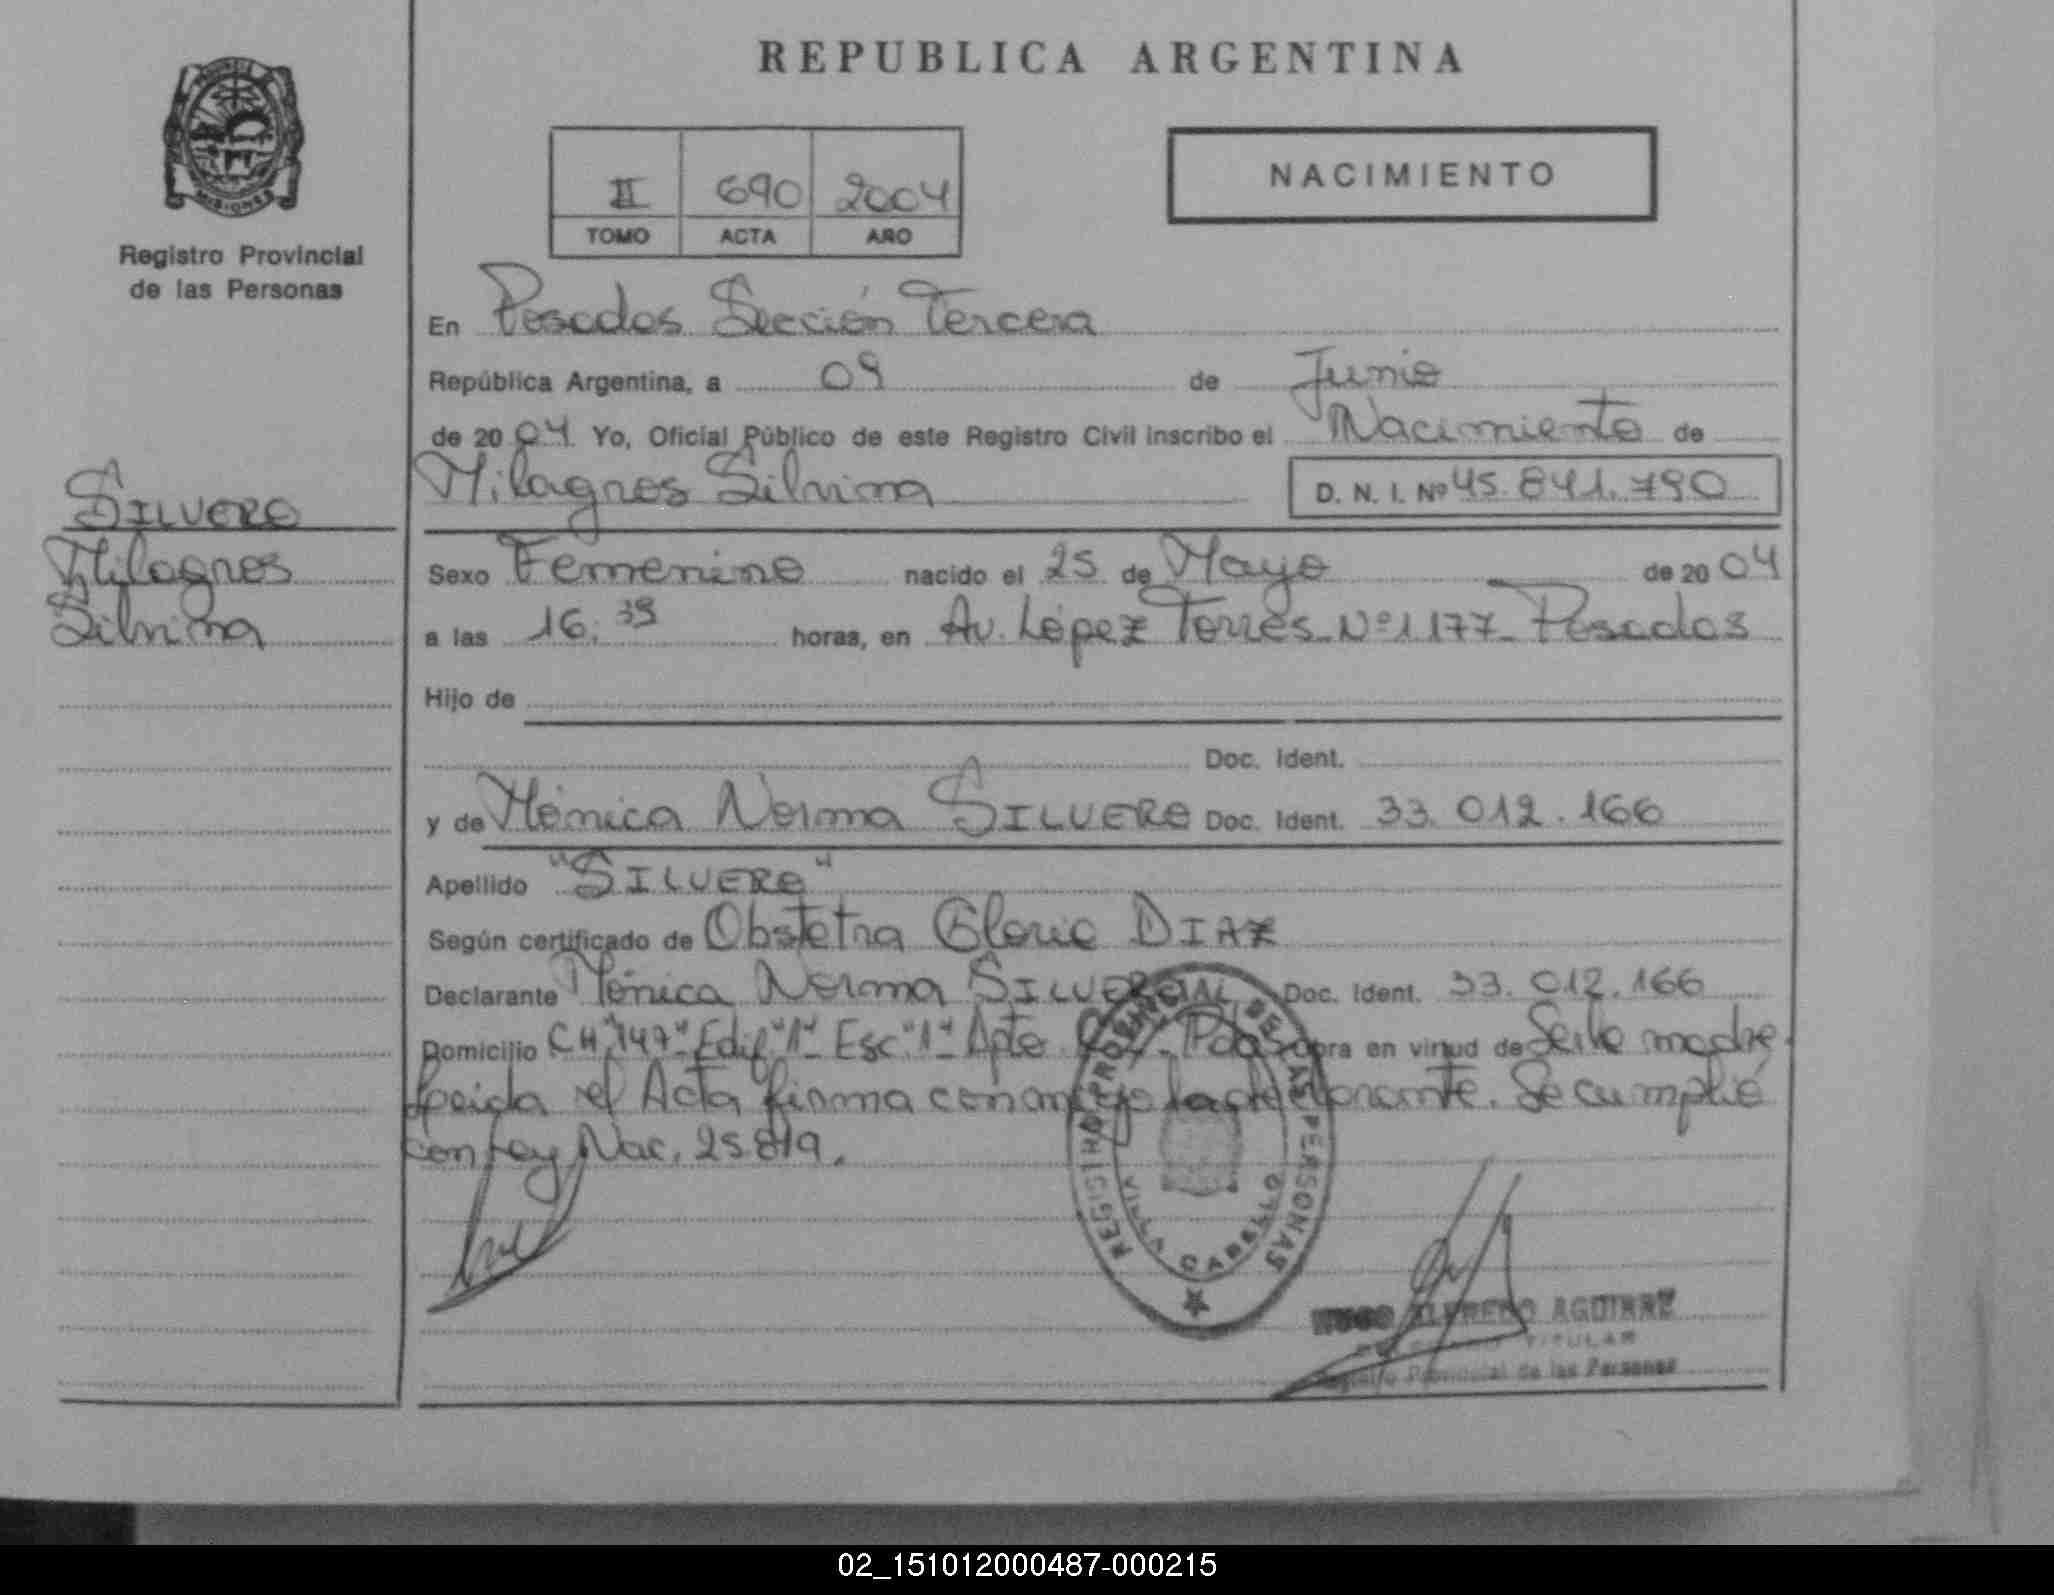 REPUBLICA ARGENTINA
MISIONES
Registro Provincial
de las Personas
II 690 2004
TOMO ACTA AÑO
NACIMIENTO
En Posadas Sección Tercera
República Argentina, a 09 de Junio
de 2004. Yo, Oficial Público de este Registro Civil inscribo el Nacimiento de
Milagros Silvina D. N. I. Nº 45.841.790
SILVERO
Milagros
Silvina
Sexo Femenino nacido el 25 de Mayo de 2004
a las 16:39 horas, en Av. López Torres Nº 1177 - Posadas
Hijo de
Doc. Ident.
y de Mónica Norma SILVERO Doc. Ident. 33.012.166
Apellido "SILVERO"
Según certificado de Obstetra Gloria DIAZ
Declarante Mónica Norma SILVERO Doc. Ident. 33.012.166
Domicilio CH "147" - Edif "1" - Esc. "1" Apto - Pdas Obra en virtud de Ser la madre.
Leída el Acta firma conmigo la declarante. Se cumplió
con Ley Nac. 25.819.
REGISTRO PROVINCIAL DE LAS PERSONAS
VILLA CABELLO
HUGO ALFREDO AGUIRRE
TITULAR
Registro Provincial de las Personas
02_151012000487-000215